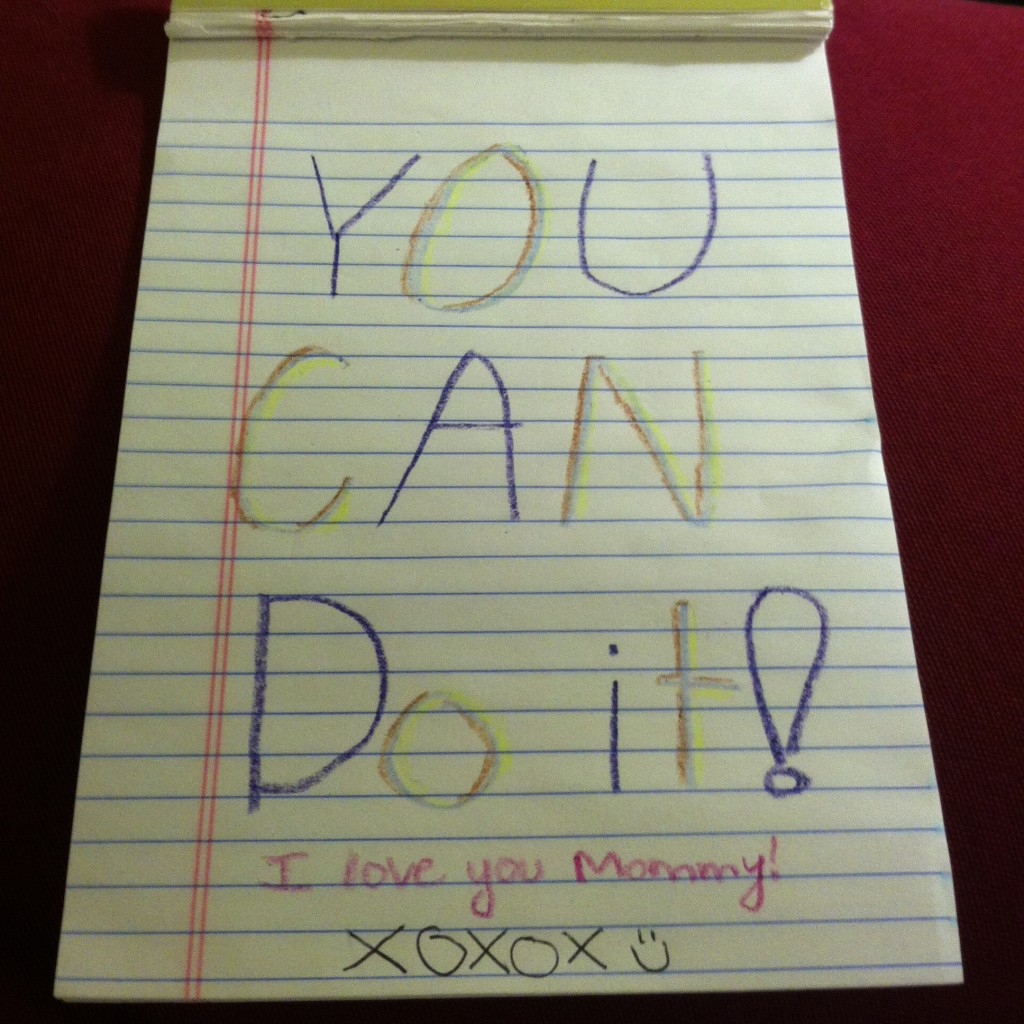 YOU
CAN
Do it!
I love you Mommy!
XOXOX ü